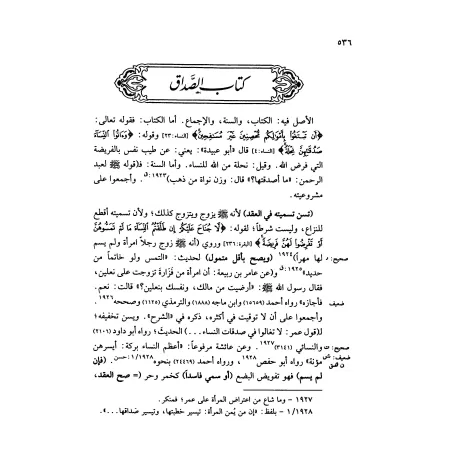 ٥٣٦
كتاب الصَّدَاق
الأصل فيه: الكتاب، والسنة، والإجماع. أما الكتاب: فقوله تعالى:
﴿أَن تَبْتَغُوا بِأَمْوَالِكُم مُّحْصِنِينَ غَيْرَ مُسَافِحِينَ﴾ [النساء: ٢٣] وقوله: ﴿وَآتُوا النِّسَاءَ
صَدُقَاتِهِنَّ نِحْلَةً﴾ [النساء: ٤] قال «أبو عبيدة»: يعني: عن طيب نفس بالفريضة
التي فرض الله. وقيل: نحلة من الله للنساء. وأما السنة: فـ(قوله ﷺ لعبد
الرحمن: «ما أصدقتها؟» قال: وزن نواة من ذهب)١٩٢٣:ق. وأجمعوا على
مشروعيته.
(تسن تسميته في العقد) لأنه ﷺ يزوج ويتزوج كذلك؛ ولأن تسميته أقطع
للنزاع، وليست شرطاً؛ لقوله: ﴿لَا جُنَاحَ عَلَيْكُمْ إِن طَلَّقْتُمُ النِّسَاءَ مَا لَمْ تَمَسُّوهُنَّ
أَوْ تَفْرِضُوا لَهُنَّ فَرِيضَةً﴾ [البقرة: ٢٣٦] وروي (أنه ﷺ زوج رجلاً امرأة ولم يسم
صحيح: د لها مهراً)١٩٢٤ (ويصح بأقل متمول) لحديث: «التمس ولو خاتماً من
حديد»١٩٢٥:ق و(عن عامر بن ربيعة: أن امرأة من فزارة تزوجت على نعلين،
فقال رسول الله ﷺ: «أرضيت من مالك، ونفسك بنعلين؟» قالت: نعم.
ضعيف فأجازه) رواه أحمد (١٥٦٥٩) وابن ماجه (١٨٨٨) والترمذي (١١٢٥) وصححه١٩٢٦.
وأجمعوا على أن لا توقيت في أكثره، ذكره في «الشرح». ويسن تخفيفه؛
لـ(قول عمر: لا تغالوا في صدقات النساء... الحديث؛ رواه أبو داود (٢١٠٦)
صحيح: والنسائي (٣١٤١)١٩٢٧. وعن عائشة مرفوعاً: «أعظم النساء بركة: أيسرهن
ضعيف: مؤنة» رواه أبو حفص١٩٢٨، ورواه أحمد (٢٤٤٦٩) بنحوه ١/١٩٢٨:حسن. (فإن
لم يسم) فهو تفويض البضع (أو سمي فاسداً) كخمر وحر (= صح العقد،
١٩٢٧ - وما شاع من اعتراض المرأة على عمر؛ فمنكر.
١/١٩٢٨ - بلفظ: «إن من يُمن المرأة: تيسير خطبتها، وتيسير صداقها...».